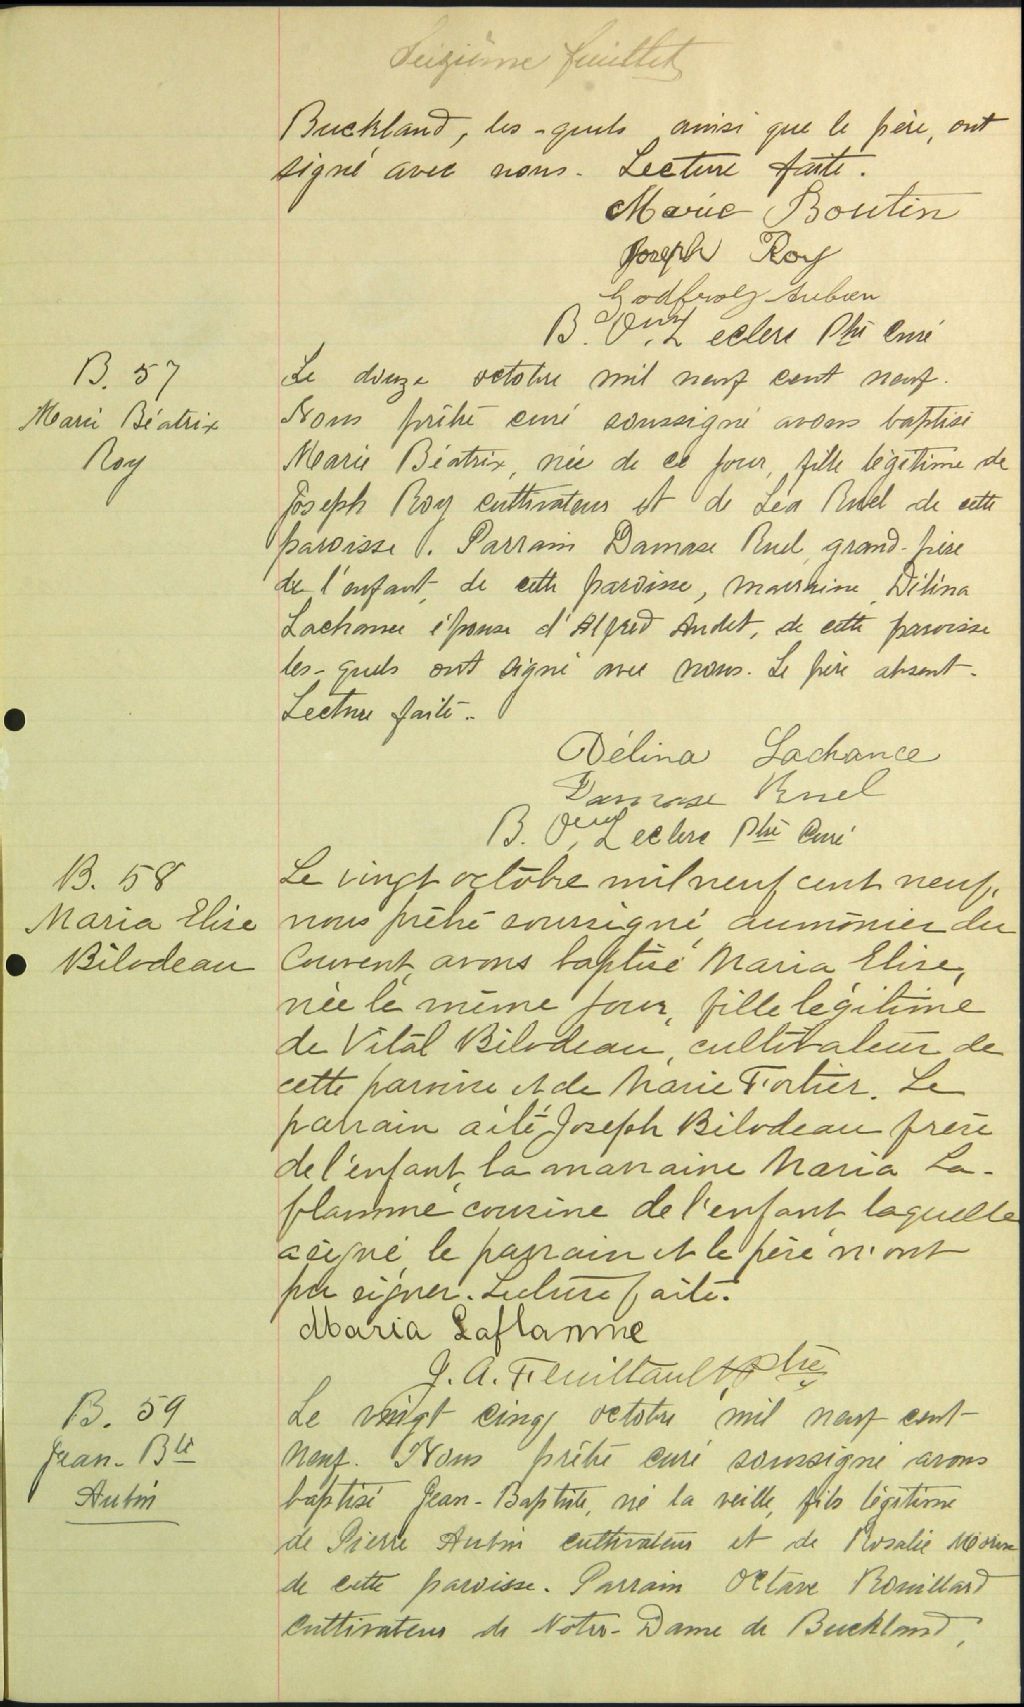 Seizième feuillet
Buckland, les-quels ainsi que le père, ont
signé avec nous. Lecture faite.
Marie Boutin
Joseph Roy
B. Leclerc Ptre Curé
B. 57
Marie Béatrix
Roy
Le douze octobre mil neuf cent neuf.
Nous prêtre curé soussigné avons baptisé
Marie Béatrix, née de ce jour, fille légitime de
Joseph Roy cultivateur et de Léa Ruel de cette
paroisse. Parrain Damase Ruel grand-père
de l'enfant, de cette paroisse, marraine Délina
Lachance épouse d'Alfred Audet, de cette paroisse
les-quels ont signé avec nous. Le père absent.
Lecture faite.
Délina Lachance
Damase Ruel
B. Leclerc Ptre Curé
B. 58
Maria Elise
Bilodeau
Le vingt octobre mil neuf cent neuf,
nous prêtre soussigné, aumônier du
Couvent, avons baptisé Maria Elise,
née le même jour, fille légitime
de Vital Bilodeau, cultivateur de
cette paroisse et de Marie Fortier. Le
parrain a été Joseph Bilodeau frère
de l'enfant, la marraine Maria La-
flamme cousine de l'enfant laquelle
a signé, le parrain et le père n'ont
pu signer. Lecture faite.
Maria Laflamme
J. A. Feuiltault, Ptre
B. 59
Jean-Bte
Aubin
Le vingt cinq octobre mil neuf cent
neuf. Nous prêtre curé soussigné avons
baptisé Jean-Baptiste, né la veille, fils légitime
de Pierre Aubin cultivateur et de Rosalie Morin
de cette paroisse. Parrain Octave Rouillard
cultivateur de Notre-Dame de Buckland,